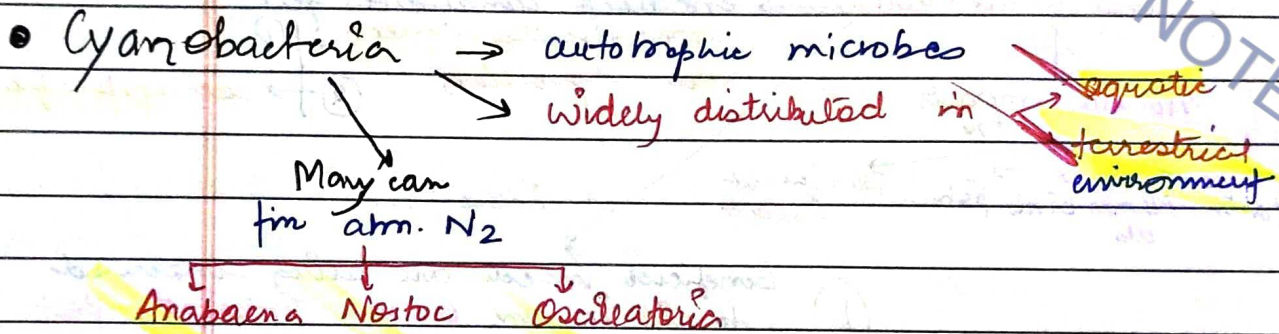 • Cyanobacteria → autotrophic microbes
widely distributed in → aquatic
terrestrial
environment
Many can
fix atm. N2
Anabaena Nostoc Oscilleatoria
NOTE